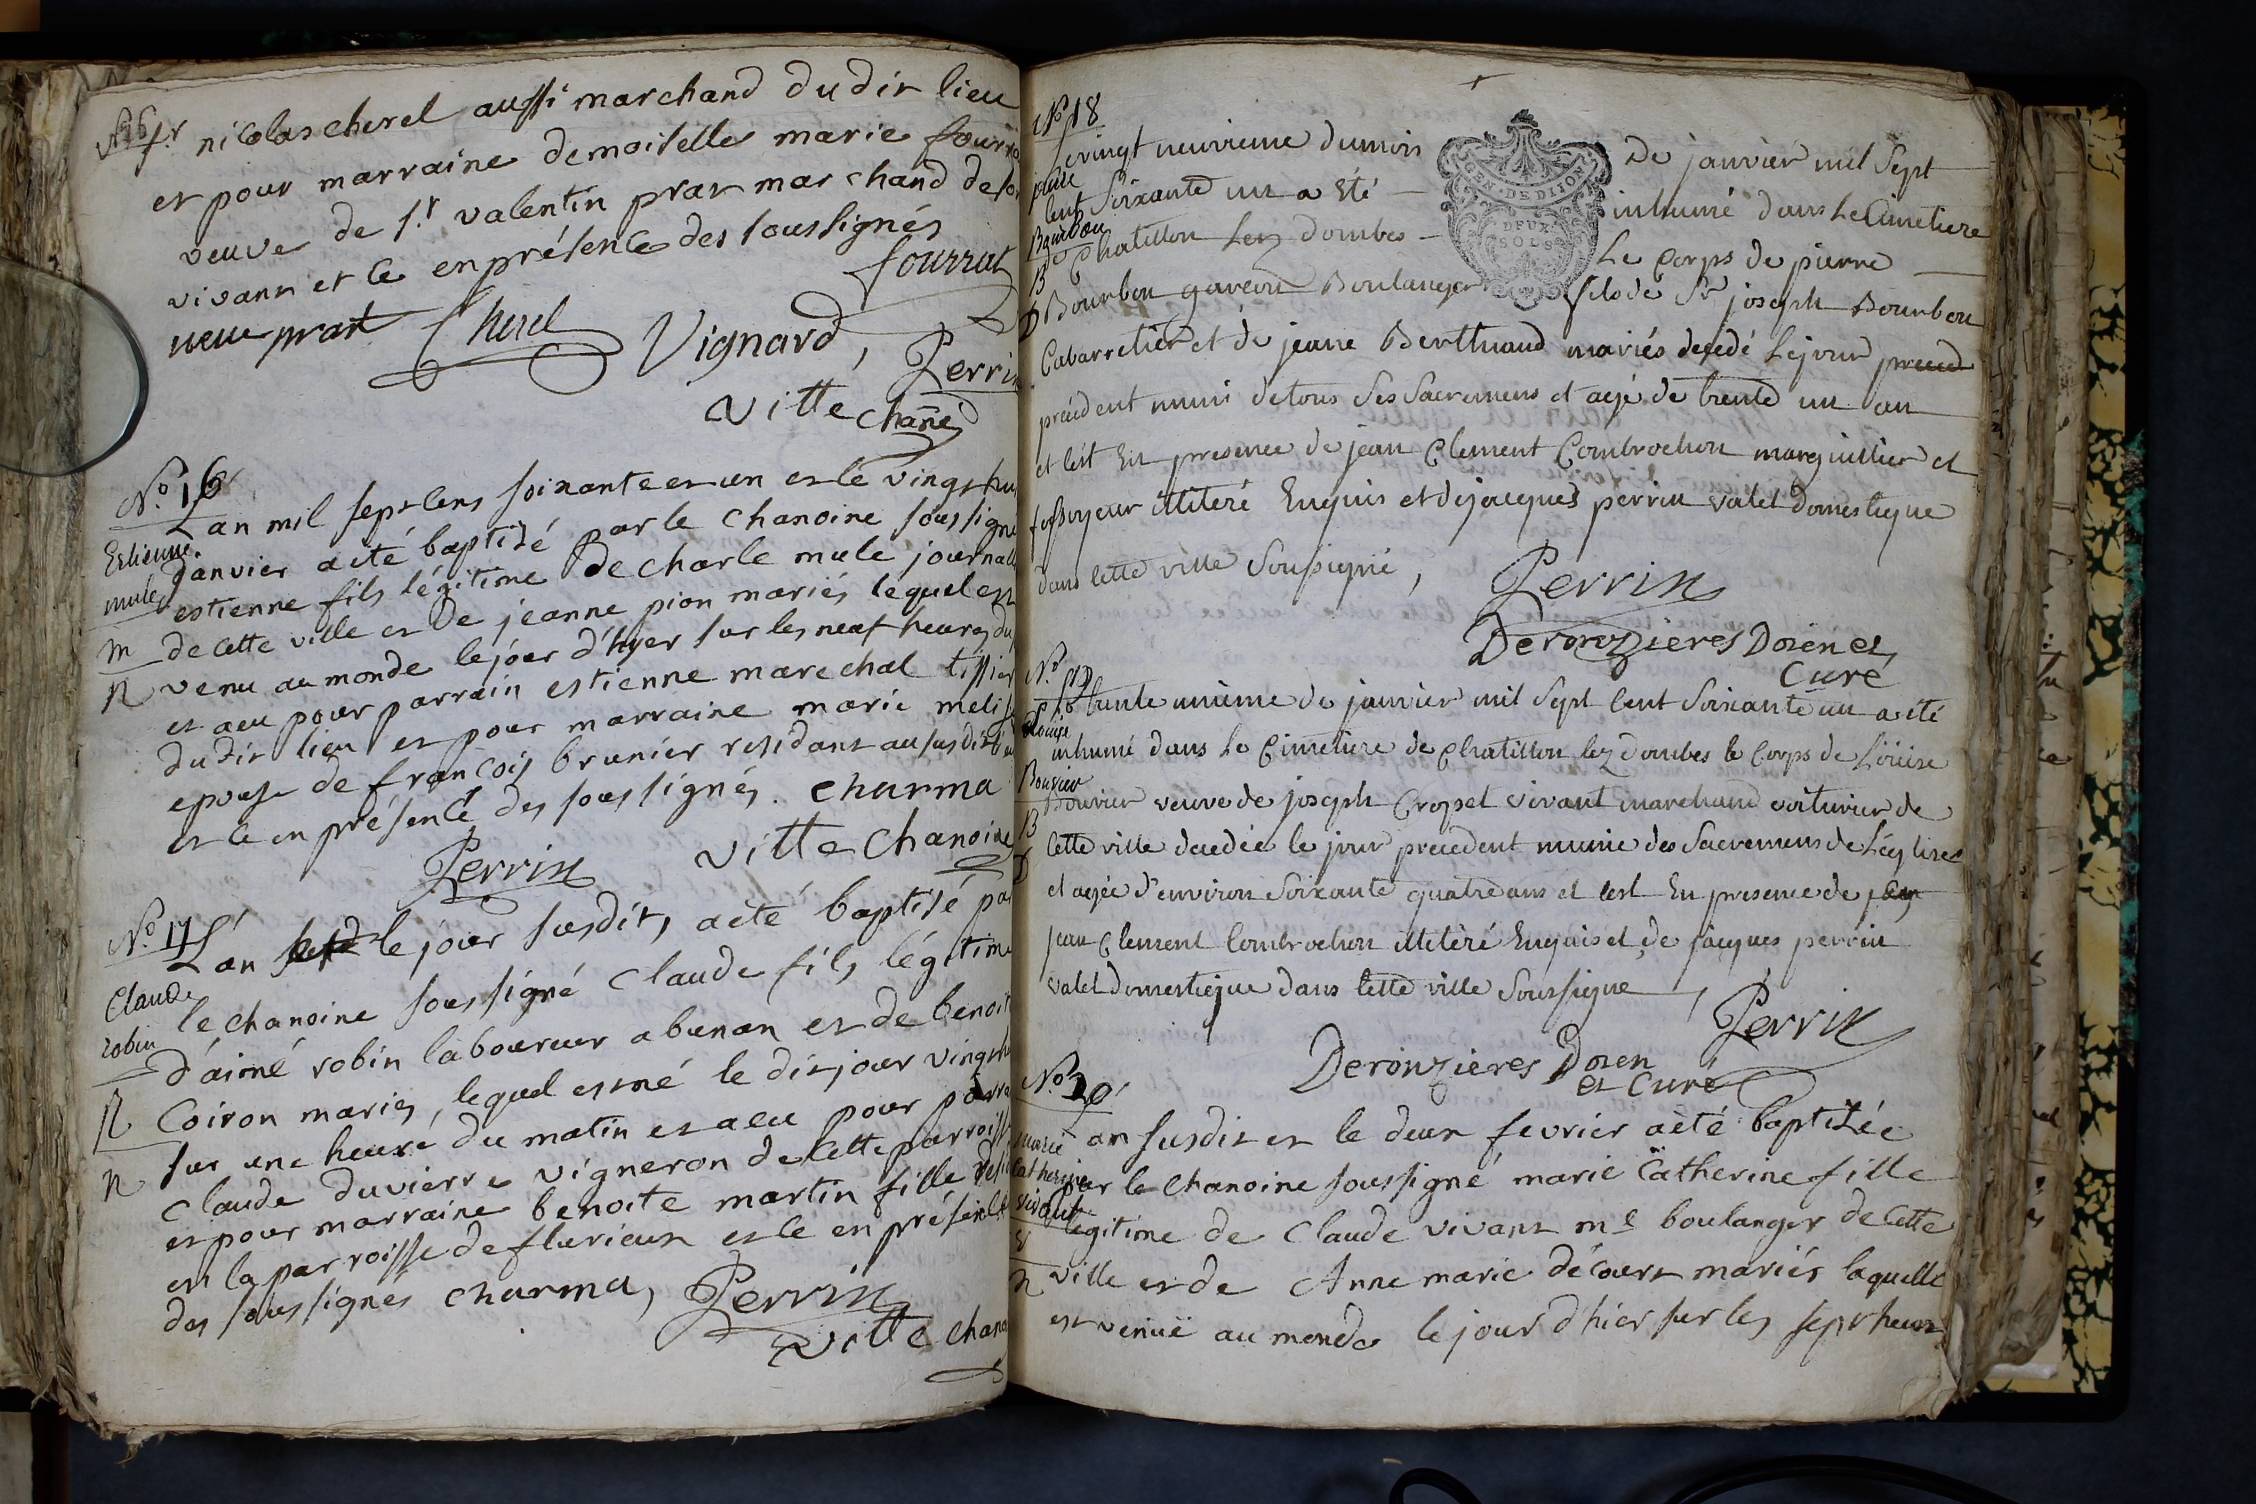 Sr nicolas cherel aussi marchand dudit lieu
et pour marraine demoiselle marie
veuve de Sr. valentin prat marchand de
vivant et ce en présence des soussignés
fourrat
veuve prat Cherel Vignard, Perrin
Vitte chane
No. 16
Lan mil sept cens soixante et un et le vingt
Estienne
janvier a eté baptisé par le chanoine soussigné
mule
estienne fils légitime de charle mule
m
de cette ville et de jeanne pion mariés lequel est
n
venu au monde le jour d'hyer sur les neuf heures du
et a eu pour parrain estienne marechal tissier
dudit lieu et pour marraine marie
epouse de françois brunier residant au susdit
et ce en présence des soussignés. charma
Perrin Vitte Chanoine
No. 17
L'an le jour susdit, a eté baptisé par
Claude
le chanoine soussigné Claude fils légitime
robin
d'aimé robin laboureur a bunan et de
R
Coiron mariés, lequel est né le dit jour
sur une heure du matin et a eu pour
n
Claude duvierre vigneron de cette parroisse
et pour marraine benoite martin fille
en la parroisse de flurieux et ce en présence
des soussignés charma, Perrin
Vitte
No. 18
vingt neuvieme du mois de janvier mil Sept
pierre
cent Soixante un a Eté inhumé dans Le Cimetiere
Bourbon
de Chatillon Lez dombes Le Corps de pierre
B
D
Bourbon garcon Boulanger fils de Sr joseph Bourbon
Cabarretier et de jeane Berthuaud mariés decedé Le jour
précédent muni de tous Ses Sacremens et agé de trente un an
et c'est En presence de jean Clement Combrochon marguillier et
fossoyeur illiteré Enquis et de jacques perrin valet domestique
dans cette ville Soussigné,
Perrin
Deronzieres Doien et
Curé
EN. DE DIJON
DEUX
SOLS
No. 19
Le trente unieme de janvier mil Sept Cent Soixante un a eté
Loüise
inhumé dans Le Cimetiere de Chatillon lez dombes le Corps de Loüise
Bouvier
Bouvier veuve de joseph Cropet vivant marchand voiturier de
B
cette ville decedée le jour precedent munie des Sacremens de L'église
D
et agée d'environ Soixante quatre ans et c'est En presence de
jean Clement Combrochon illiteré Enquis et de jacques perrin
valet domestique dans cette ville Soussigné,
Perrin
Deronzieres Doien
et Curé
No. 20
an susdit et le deux fevrier a eté baptisée
marie
par le chanoine soussigné marie Catherine fille
Catherine
vivant
légitime de Claude vivant me boulanger de cette
V
ville et de Anne marie décourt mariés laquelle
n
est venuë au monde le jour d'hier sur les sept heures